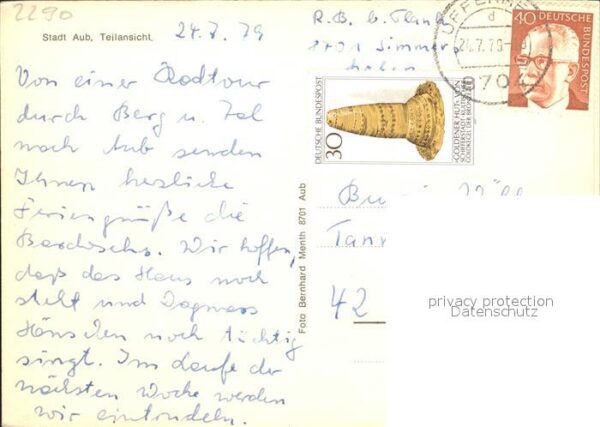 2290
24.7.79
Stadt Aub, Teilansicht.
Von einer Radtour
durch Berg u. Tal
nach Aub senden
Ihnen herzliche
Feriengrüße die
Wir hoffen,
daß das Haus noch
steht und Dagmars
Hänschen noch tüchtig
singt. Im Laufe der
nächsten Woche werden
wir eintrudeln.
R.B. b.
8701
UFFENHEIM
d
24.7.79
870
40 DEUTSCHE
BUNDESPOST
DEUTSCHE BUNDESPOST
30
»GOLDENER HUT« VON
SCHIFFERSTADT
Foto Bernhard Menth 8701 Aub
Tann
42
privacy protection
Datenschutz